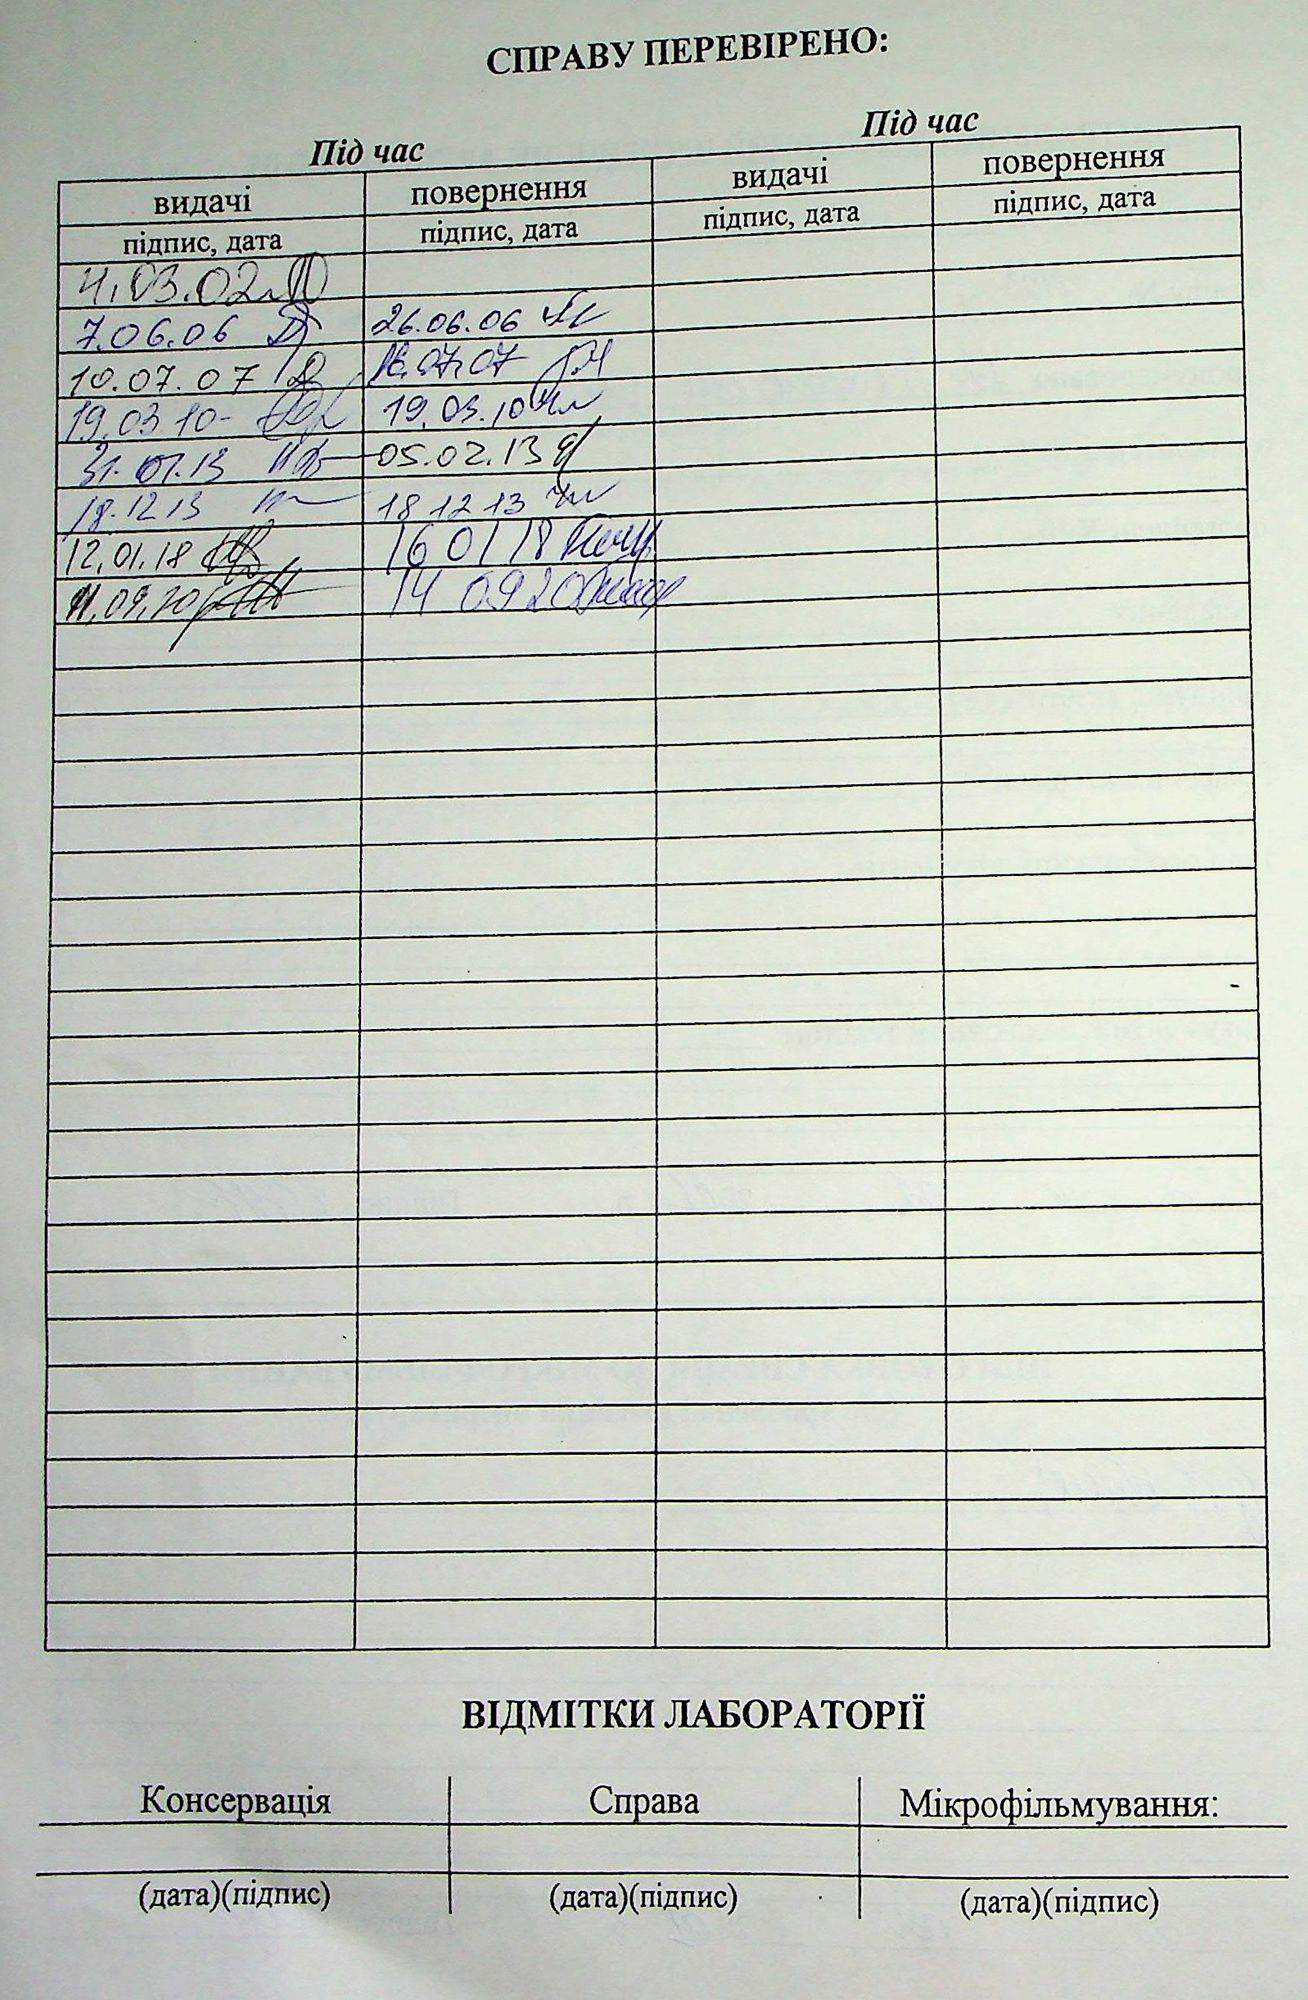 СПРАВУ ПЕРЕВІРЕНО:
Під час Під час
видачі повернення видачі повернення
підпис, дата підпис, дата підпис, дата підпис, дата
4.03.02
7.06.06 26.06.06
10.07.07 07.07
19.03 10- 19.03.10
31.01.13 05.02.13
18.12 13 18 12 13
12.01.18 16 01 18
11.09.20 14 09 20
ВІДМІТКИ ЛАБОРАТОРІЇ
Консервація Справа Мікрофільмування:
(дата)(підпис) (дата)(підпис) (дата)(підпис)